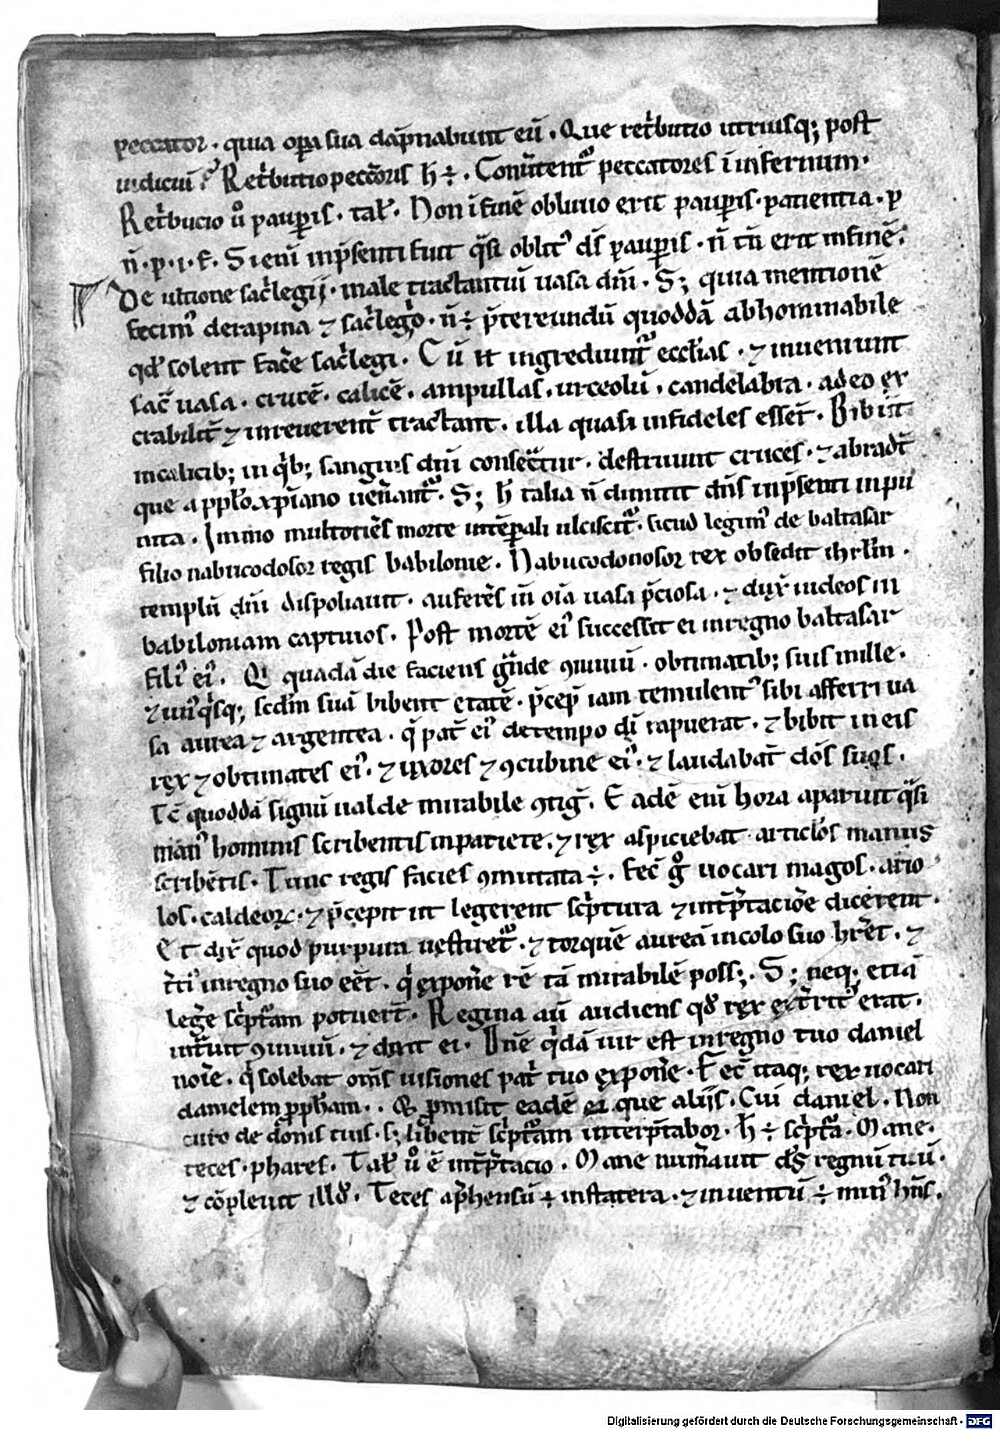 peccator · quia opa sua dāpnabunt eū · Que ret'butio utriusq; post
iudiciū? Ret'butio peccatoris h̄ ÷ · Conūtent᷑ peccatores ī infernum ·
Ret'bucio ū paupis · tał · Non ī finē obliuio erit paupis · patientia · p
n̄ · p · i · f · Si enī īpsenti fuit q̄si oblit' ds̄ paupis · n̄ tn̄ erit in finē ·
De ultione sac'legij · male tractantiū uasa dn̄i · S; quia mentionē
fecim' de rapina ⁊ sac'lego · n̄ ÷ p̄tereundū quoddā abhominabile
qd' solent fac'e sac'legi · Cū n̄ ingrediunt᷑ eccl'ias · ⁊ inueniunt
sac' uasa · crucē · calicē · ampullas · urceolū · candelabra · adeo ex
crabilit' ⁊ inreuerent' tractant · illa quasi infideles essent · Bibūt
in calicib; in q'b; sanguis dn̄i consec̄tur · destruunt cruces · ⁊ abradūt
que a pplo xp̄iano uen̄ant᷑ · S; h̄ talia n̄ dimittit dn̄s inp̄senti inpu
nita · Immo multotiēs morte intēpali ulciscit᷑ · sicud legim' de baltasar
filio nabucodosor regis babilonie · Nabucodonosor rex obsedit ihrl'm ·
templū dn̄i dispoliauit · auferēs īn oīa uasa p̄ciosa · ⁊ dux' iudeos in
babiloniam captiuos · Post mortē ei' successit ei in regno baltasar
fili' ei' · Qi quadā die faciens g̃nde 9uiuiū · obtimatib; suis mille ·
⁊ un'q'sq; scdm̄ suā bibent etatē · p̄cep' iam temulent' sibi afferri ua
sa aurea ⁊ argentea · q̄ pat' ei' de tempo dī rapuerat · ⁊ bibit in eis
rex ⁊ obtimates ei' · ⁊ uxores ⁊ 9cubine ei' · ⁊ laudabat' dōs suos ·
Tc̄ quoddā signū ualde mirabile 9tig' · Eadē enī hora aparuit q̄si
man' hominis scribentis in pariete · ⁊ rex aspiciebat articlōs manus
scribētis · Tunc regis facies 9mutata ÷ · Fec' g° uocari magos · ario
los · caldeoꝝ · ⁊ p̄cepit ut legerent sc'ptura ⁊ int'p̄tacioē dicerent ·
Et dix' quod purpura uestiret᷑ · ⁊ torquē aureā in colo suo h'ret · ⁊
t'ti' in regno suo eēt · q' expon'e rē tā mirabilē poss; · S; neq; etiā
leg'e sc'pt'am potuert · Regina aū audiens qd' rex ext'rit' erat ·
int'uit 9uiuiū · ⁊ dixit ei · Dn̄e q'dā uir est in regno tuo daniel
noīe · q' solebat om̄s uisiones pat' tuo expon'e · Fec' itaq; rex uocari
danielem pph'am · · Et p'misit eadē ei que alijs · Cui daniel · Non
curo de donis tuis · s; libent' sc'pt'am interp̄tabor · h̄ ÷ sc'pt'a · Mane ·
teces · phares · Tał ū ē int'p̄tacio · Mane num'auit ds̄ regnū tuū ·
⁊ cōpleuit illd' · Teces ap'hensū ÷ in statera · ⁊ inuentū ÷ min' h'ns ·
Digitalisierung gefördert durch die Deutsche Forschungsgemeinschaft · DFG